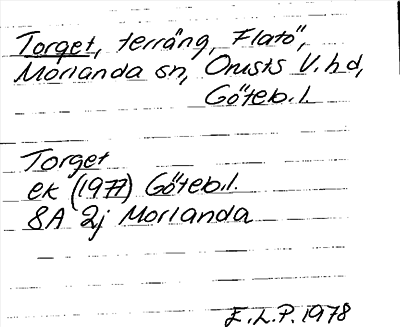 Torget, terräng, Flatö,
Morlanda sn, Orusts V. hd,
Göteb.l.
Torget
ek (1977) Göteb.l.
8A 2j Morlanda
E.L.P. 1978